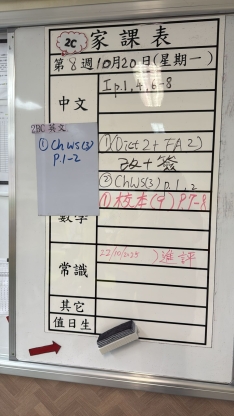 2C 家課表
第8週10月20日(星期一)
中文 I p.1,4,6-8
2BC 英文
① ChWS(3)
p.1-2
① (Dict 2 + FA 2)
改+簽
② ChWS(3) p.1,2
數學 ① 校本(9) P7-8
常識 22/10/2025 進評
其它
值日生